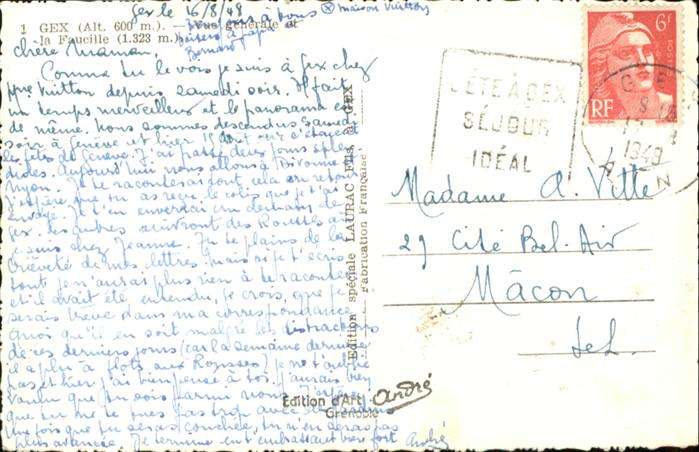 Gex le 16/8/48 ⊗ maison Vuitton
1 GEX (Alt. 600 m.). — Vue générale et
la Faucille (1.323 m.)
baisers à papa
Bernard
chère Maman,
Comme tu le vois je suis à Gex chez
Vuitton depuis samedi soir. Il fait
un temps merveilleux et le panorama est
de même. Nous sommes descendus samedi
soir à Genève et hier
les fêtes de Genève. J'ai passé deux jours splen-
dides. Aujourd'hui nous allons à Divonne
Nyon. Je te raconterai tout cela en retour
J'espère que tu as reçu le colis que je t'ai
envoyé. Je t'en enverrai un dechans de
Gex. Les autres suivront des Rousses où
je suis chez Jeanne. Tu te plains de la
brièveté de mes lettres mais si je t'écris
tout je n'aurai plus rien à te raconter
et il avait été entendu, je crois, que je
serais brève dans ma correspondance
Quoi qu'il en soit malgré les distractions
de ces derniers jours (car la semaine dernière
il a plu à flots aux Rousses) je ne t'oublie
pas et hier j'ai bien pensé à toi. J'aurais bien
voulu que tu sois parmi nous. J'espère
que tu ne te
fois que tu seras couchée, tu n'en seras pas
plus avancée. Je termine en t'embrassant bien fort
André
Edition spéciale LAURAC FILS, à GEX
Fabrication Française
Edition d'Art André
Grenoble
L'ÉTÉ À GEX
SÉJOUR
IDÉAL
6F
RF
GEX
1948
AIN
Madame A. Vitte
29 Cité Bel-Air
Mâcon
S et L.